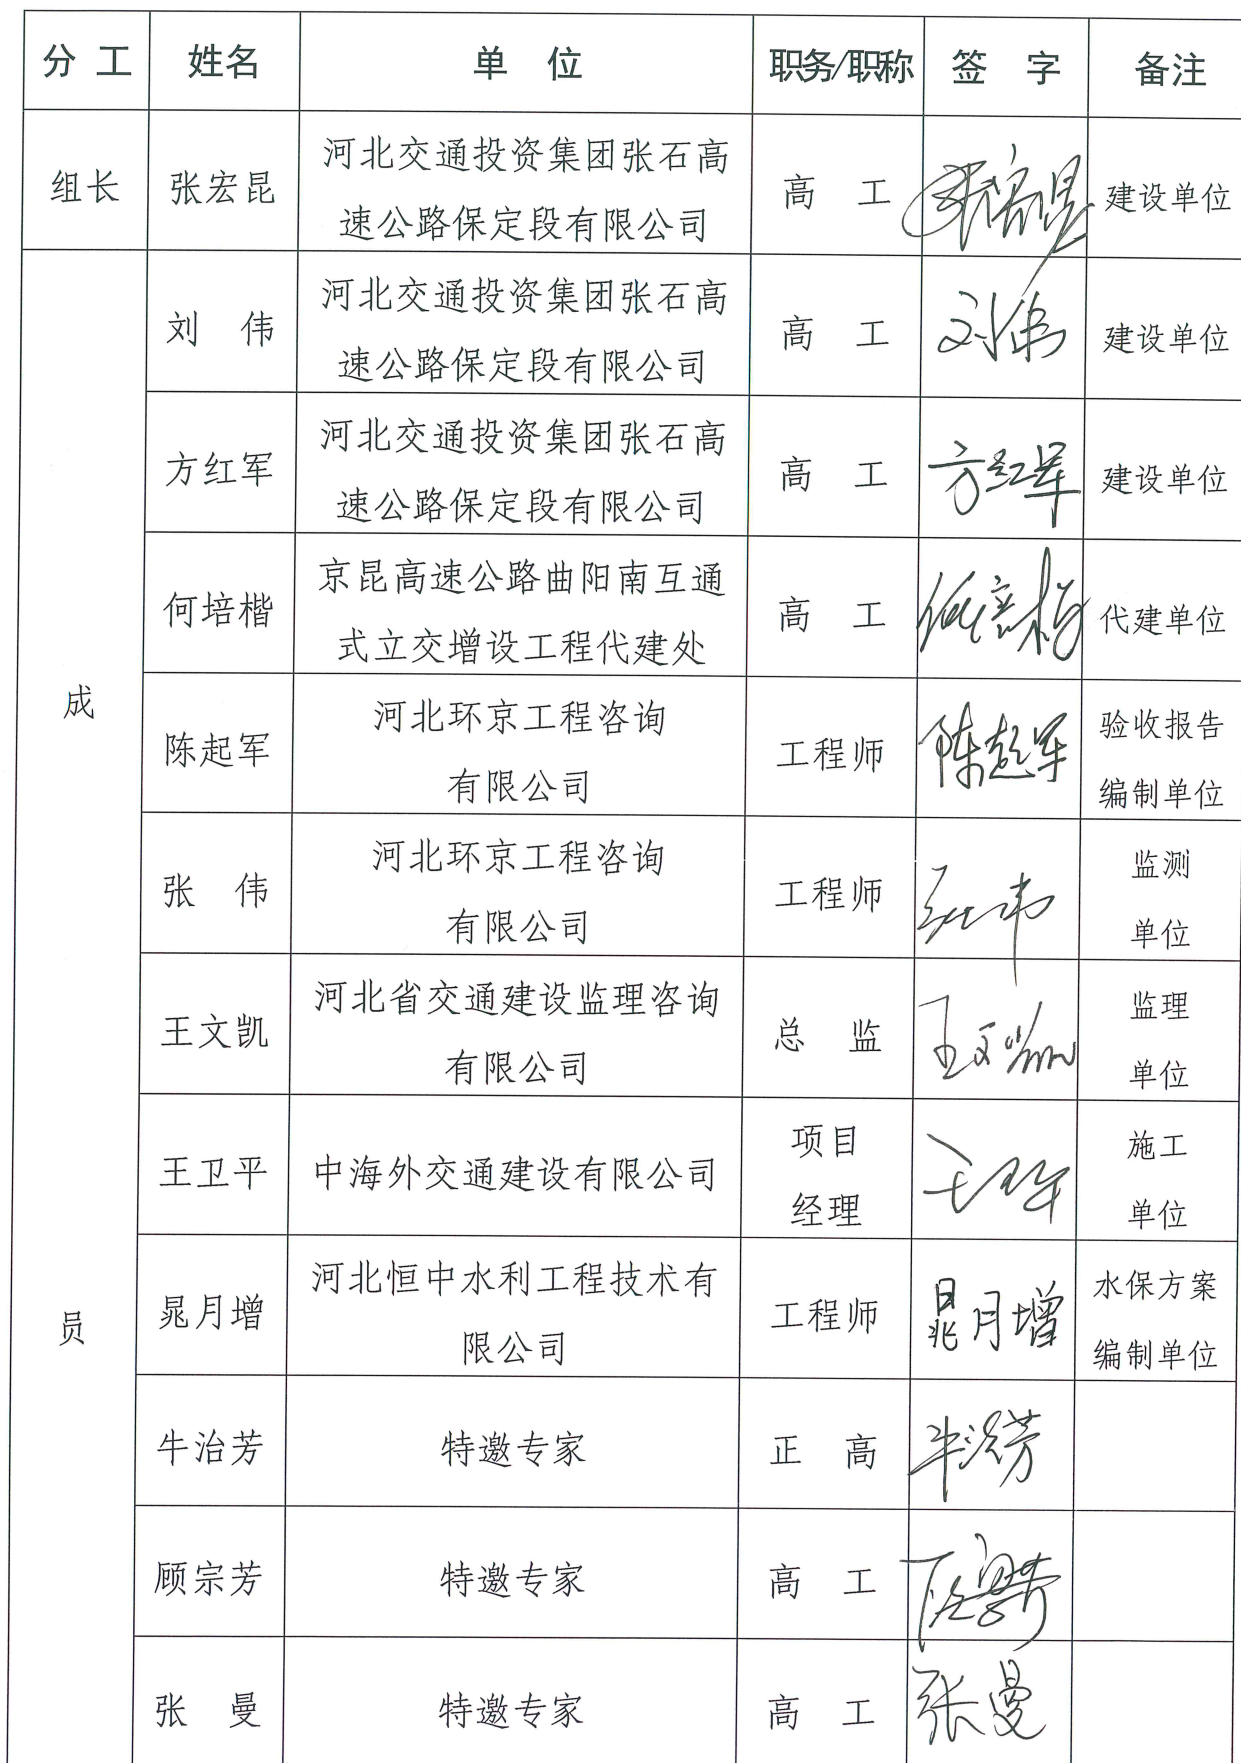 分 工 姓名 单 位 职务/职称 签 字 备注
组长 张宏昆 河北交通投资集团张石高
速公路保定段有限公司 高 工 张宏昆 建设单位
成
员
刘 伟 河北交通投资集团张石高
速公路保定段有限公司 高 工 刘伟 建设单位
方红军 河北交通投资集团张石高
速公路保定段有限公司 高 工 方红军 建设单位
何培楷 京昆高速公路曲阳南互通
式立交增设工程代建处 高 工 何培楷 代建单位
陈起军 河北环京工程咨询
有限公司 工程师 陈起军 验收报告
编制单位
张 伟 河北环京工程咨询
有限公司 工程师 张伟 监测
单位
王文凯 河北省交通建设监理咨询
有限公司 总 监 王文凯 监理
单位
王卫平 中海外交通建设有限公司 项目
经理 王卫平 施工
单位
晁月增 河北恒中水利工程技术有
限公司 工程师 晁月增 水保方案
编制单位
牛治芳 特邀专家 正 高 牛治芳
顾宗芳 特邀专家 高 工 顾宗芳
张 曼 特邀专家 高 工 张曼